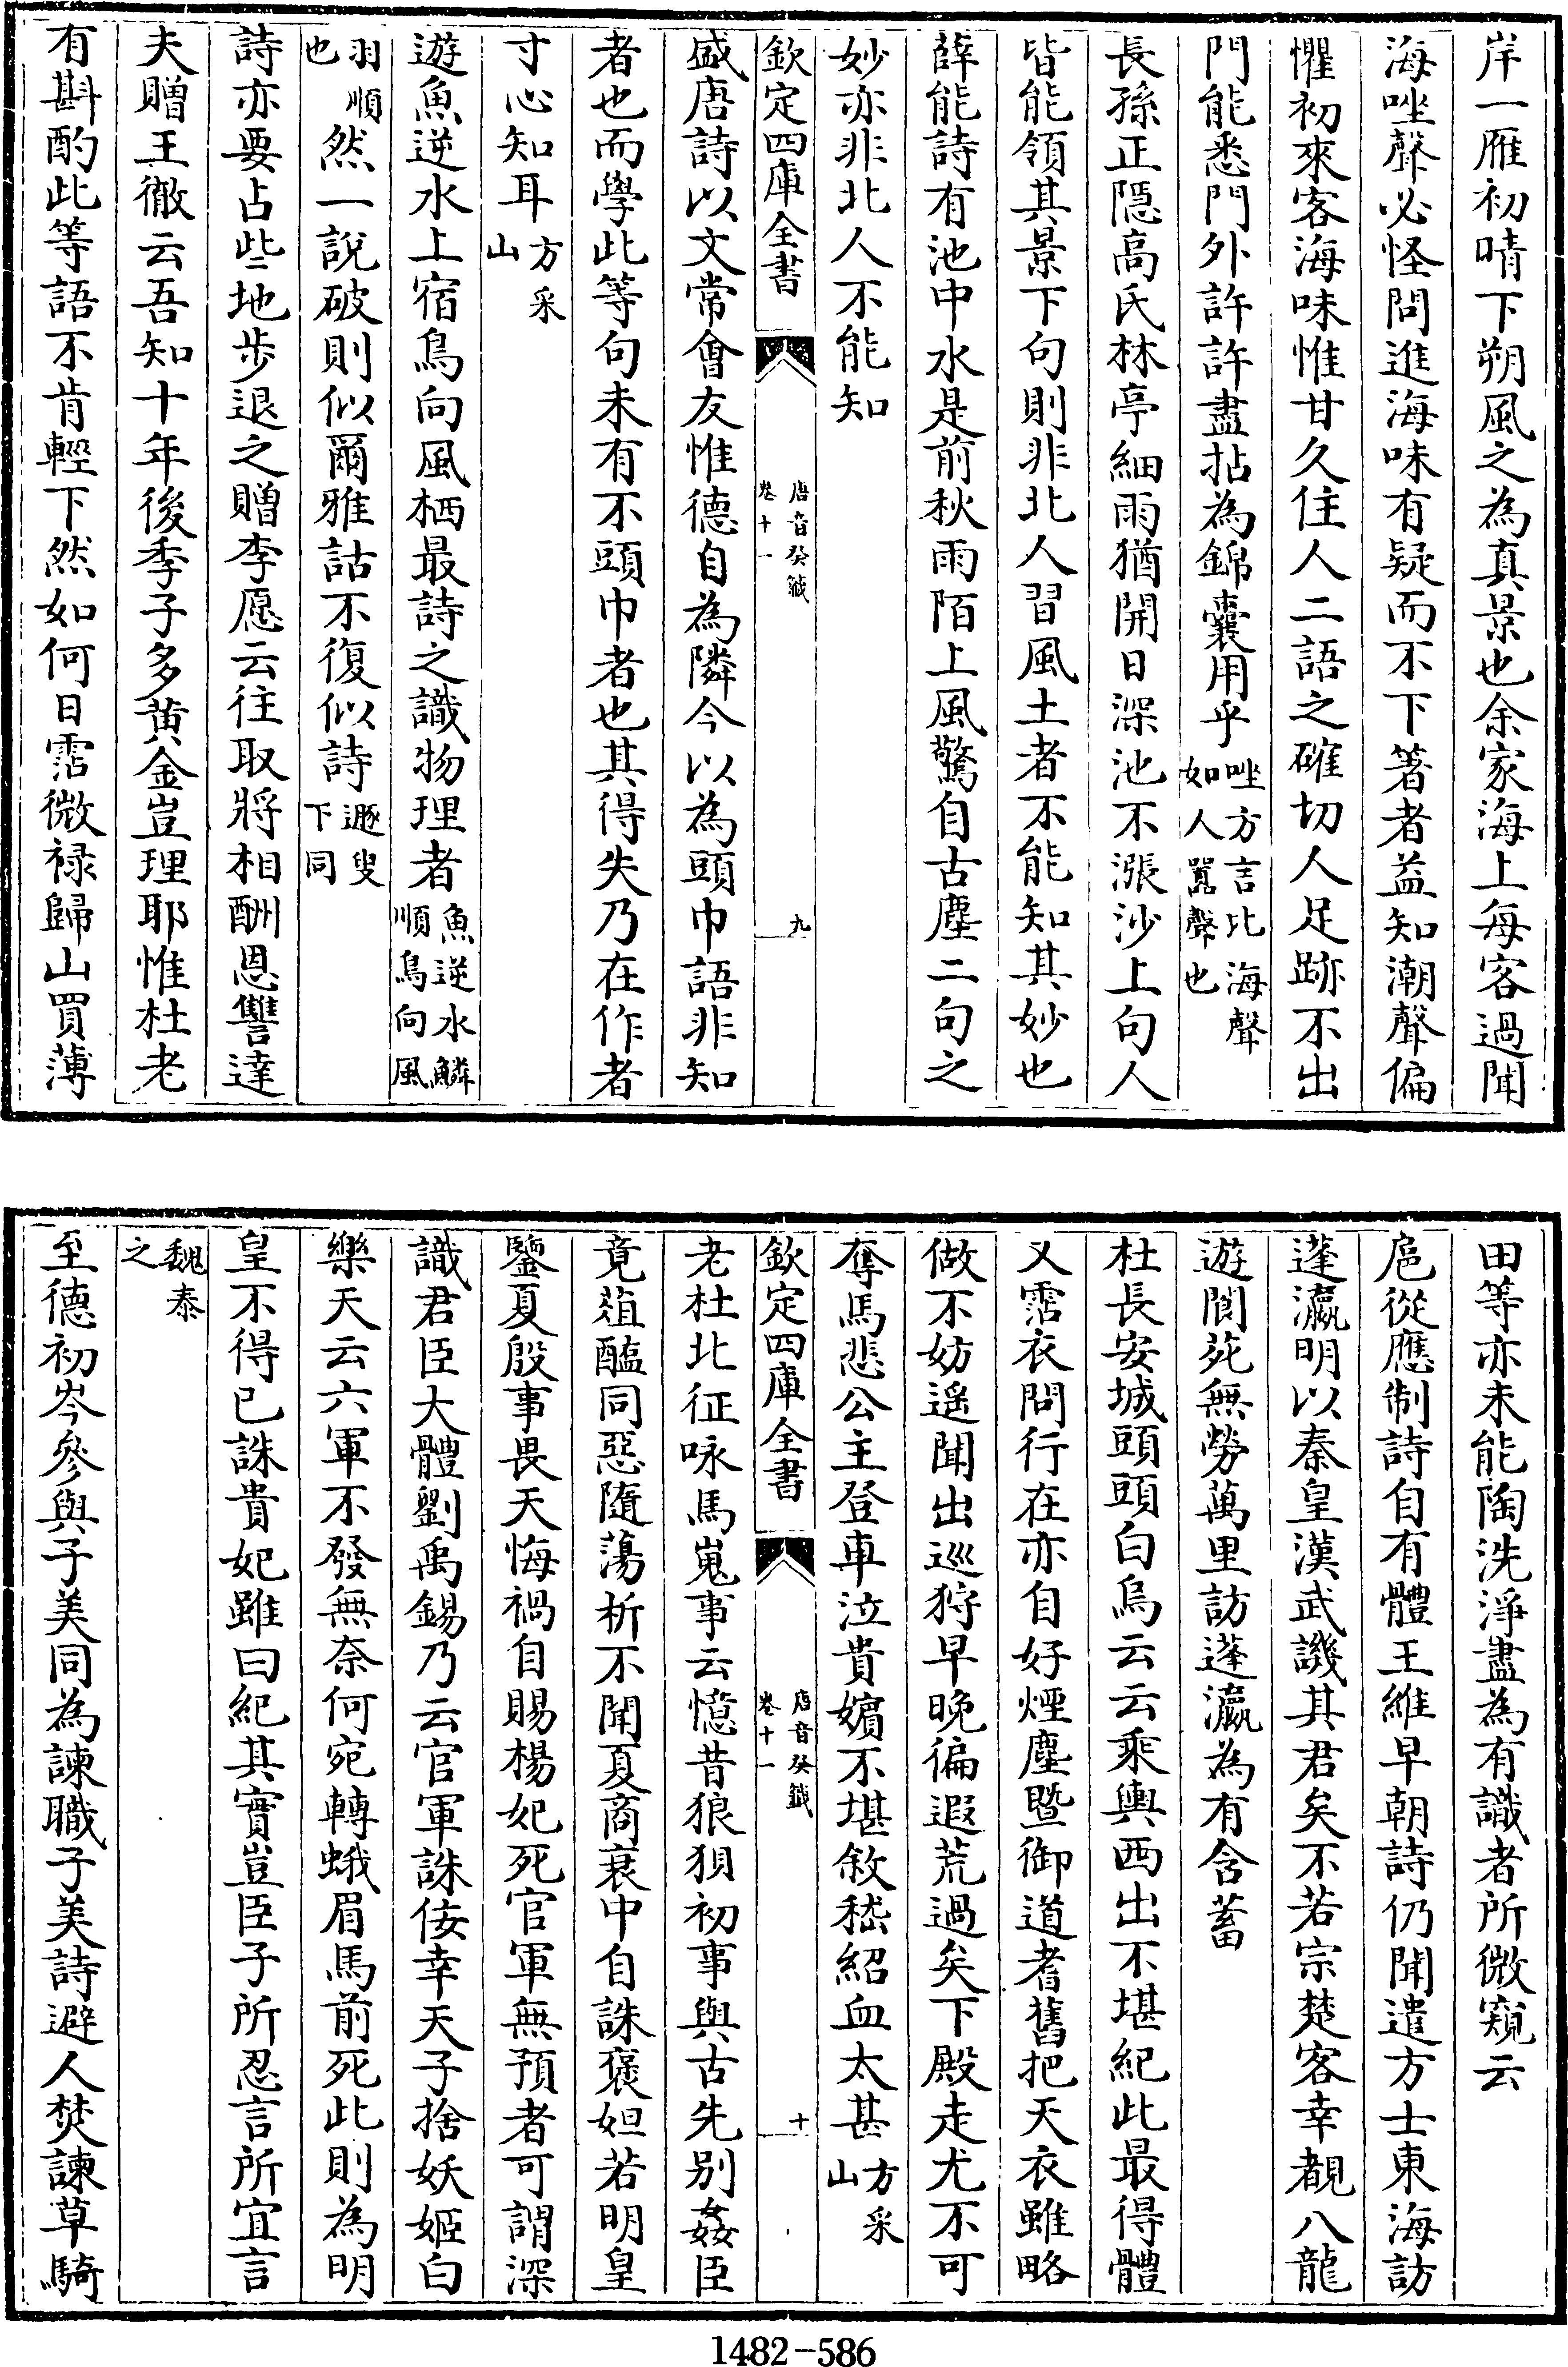 岸一雁初晴下朔風之為真景也余家海上每客過聞
海唑聲必怪問進海味有疑而不下箸者益知潮聲偏
懼初來客海味惟甘久住人二語之確切人足跡不出
門能悉門外許許盡拈為錦囊用乎唑方言比海聲如人嚣聲也
長孫正隱高氏林亭細雨猶開日深池不漲沙上句人
皆能領其景下句則非北人習風土者不能知其妙也
薛能詩有池中水是前秋雨陌上風驚自古塵二句之
妙亦非北人不能知
欽定四庫全書 唐音癸籤 卷十一 九
盛唐詩以文常會友惟德自為隣今以為頭巾語非知
者也而學此等句未有不頭巾者也其得失乃在作者
寸心知耳方采山
遊魚逆水上宿鳥向風栖最詩之識物理者魚逆水鱗順鳥向風
羽順也然一說破則似爾雅詁不復似詩遯叟下同
詩亦要占些地步退之贈李愿云往取將相酬恩讐達
夫贈王徹云吾知十年後季子多黄金豈理耶惟杜老
有斟酌此等語不肯輕下然如何日霑微禄歸山買薄
田等亦未能陶洗淨盡為有識者所微窺云
扈從應制詩自有體王維早朝詩仍聞遣方士東海訪
蓬瀛明以秦皇漢武譏其君矣不若宗楚客幸覩八龍
遊閬苑無勞萬里訪蓬瀛為有含蓄
杜長安城頭頭白烏云云乘輿西出不堪紀此最得體
又霑衣問行在亦自好煙塵暨御道耆舊把天衣雖略
做不妨遥聞出巡狩早晚徧遐荒過矣下殿走尤不可
奪馬悲公主登車泣貴嬪不堪敘嵇紹血太甚方采山
欽定四庫全書 唐音癸籤 卷十一 十
老杜北征咏馬嵬事云憶昔狼狽初事與古先别姦臣
竟葅醢同惡隨蕩析不聞夏商衰中自誅褒妲若明皇
鑒夏殷事畏天悔禍自賜楊妃死官軍無預者可謂深
識君臣大體劉禹錫乃云官軍誅佞幸天子捨妖姬白
樂天云六軍不發無奈何宛轉蛾眉馬前死此則為明
皇不得已誅貴妃雖曰紀其實豈臣子所忍言所宜言
魏泰之
至德初岑參與子美同為諫職子美詩避人焚諫草騎
1482-586